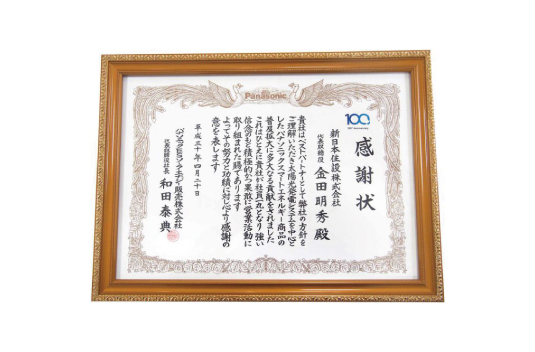 Panasonic
100
感謝状
新日本住設株式会社
代表取締役 金田明秀殿
貴社はベストパートナーとして弊社の方針を
ご理解いただき太陽光発電システムを中心と
したパナソニックスマートエネルギー商品の
普及拡大に多大なる貢献をされました
これはひとえに貴社が社員一丸となり強い
信念のもと積極的かつ果敢に営業活動に
取り組まれた賜であります
よってその努力と功績に対し心より感謝の
意を表します
平成三十年四月二十日
販売株式会社
代表取締役社長 和田泰典